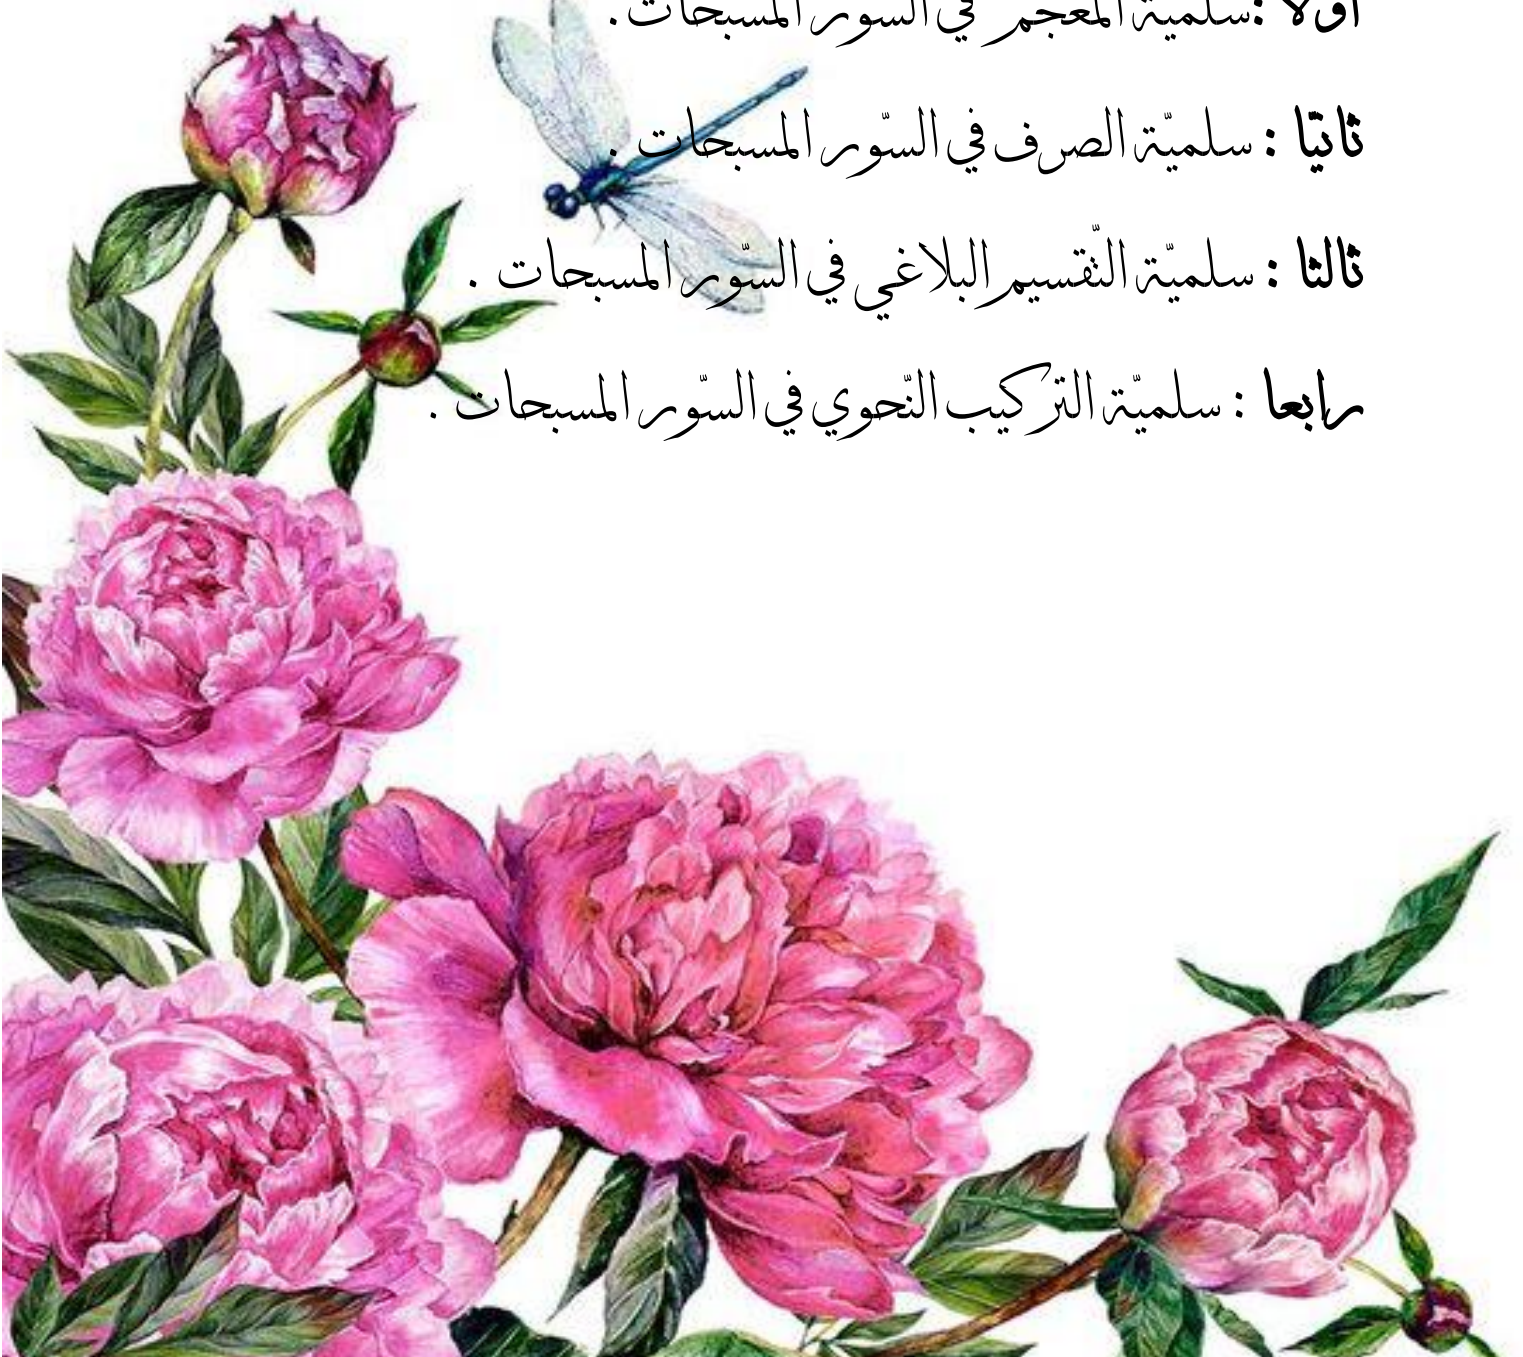 أولا :سلميّة المعجم في السّور المسبحات.
ثانيّا : سلميّة الصرف في السّور المسبحات .
ثالثا : سلميّة التّقسيم البلاغي في السّور المسبحات .
رابعا : سلميّة التركيب النّحوي في السّور المسبحات .